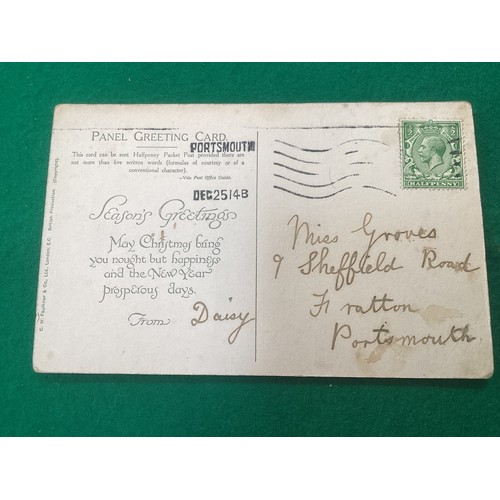 PANEL GREETING CARD.
PORTSMOUTH
This card can be sent Halfpenny Packet Post provided there are
not more than five written words (formulas of courtesy or of a
conventional character).
—Vide Post Office Guide.
DEC 25 14 B
Season's Greetings
May Christmas bring
you nought but happiness
and the New Year
prosperous days.
From Daisy
C. W. Faulkner & Co., Ltd., London, E.C. British Production. (Copyright).
HALFPENNY
Miss Groves
9 Sheffield Road
Fratton
Portsmouth.